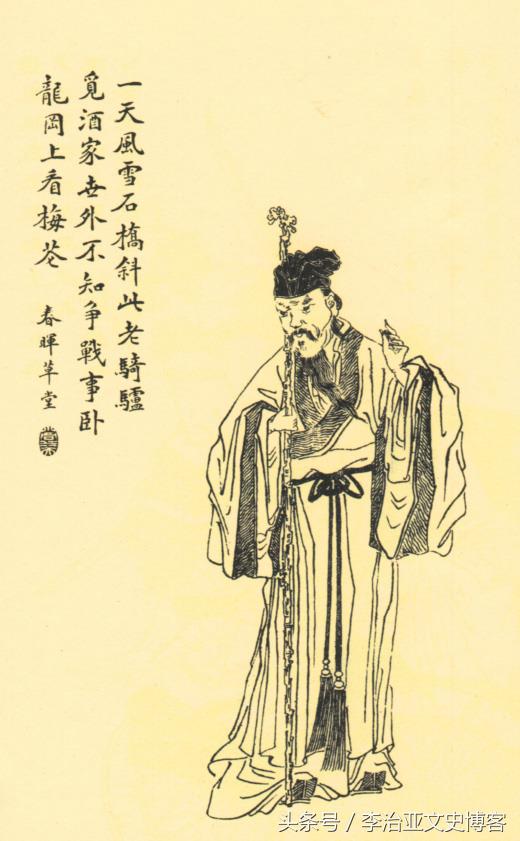 一天風雪石橋斜此老騎驢
覓酒家世外不知争戰事卧
龍岡上看梅花
春暉草堂
头条号 / 李治亚文史博客